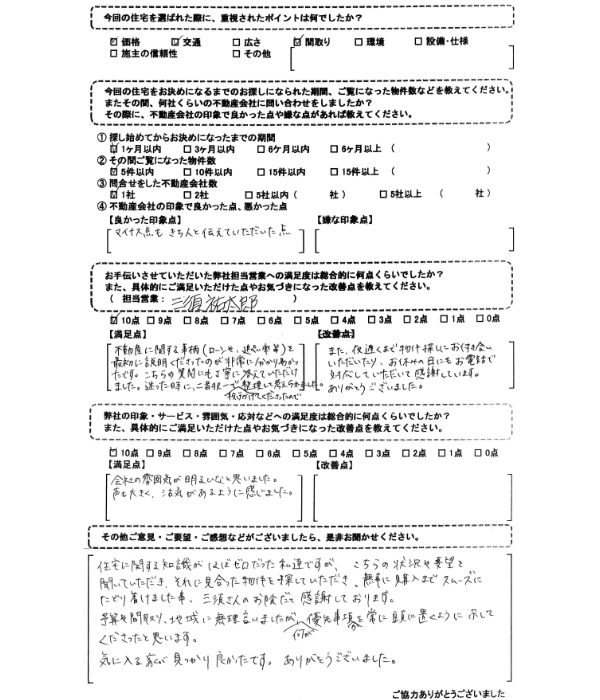 今回の住宅を選ばれた際に、重視されたポイントは何でしたか？
☑ 価格 ☑ 交通 □ 広さ ☑ 間取り □ 環境 □ 設備・仕様
□ 施主の信頼性 □ その他
今回の住宅をお決めになるまでのお探しになられた期間、ご覧になった物件数などを教えてください。
またその間、何社くらいの不動産会社に問い合わせをしましたか？
その際に、不動産会社の印象で良かった点や嫌な点があれば教えてください。
① 探し始めてからお決めになったまでの期間
☑ 1ヶ月以内 □ 3ヶ月以内 □ 6ケ月以内 □ 6ヶ月以上 （ ）
② その間ご覧になった物件数
☑ 5件以内 □ 10件以内 □ 15件以内 □ 15件以上 （ ）
③ 問合せをした不動産会社数
☑ 1社 □ 2社 □ 5社以内（ 社 ） □ 5社以上 （ 社 ）
④ 不動産会社の印象で良かった点、悪かった点
【良かった印象点】 【嫌な印象点】
マイナス点も きちんと伝えていただいた点
お手伝いさせていただいた弊社担当営業への満足度は総合的に何点くらいでしたか？
また、具体的にご満足いただけた点やお気づきになった改善点を教えてください。
（ 担当営業： 三須 祐太郎 ）
☑ 10点 □ 9点 □ 8点 □ 7点 □ 6点 □ 5点 □ 4点 □ 3点 □ 2点 □ 1点 □ 0点
【満足点】 【改善点】
不動産に関する事柄（ローンや、 等）を
最初に説明くださったのが非常に分かりやすかっ
たです。こちらの質問にも丁寧に答えていただけ
ました。迷った時に、二者択一で整理して答えられました。
くださったので
また、夜遅くまで物件探しにお付き合い
いただいたり、お休みの日にもお電話で
対応していただいて感謝しています。
ありがとうございました。
弊社の印象・サービス・雰囲気・応対などへの満足度は総合的に何点くらいでしたか？
また、具体的にご満足いただけた点やお気づきになった改善点を教えてください。
☑ 10点 □ 9点 □ 8点 □ 7点 □ 6点 □ 5点 □ 4点 □ 3点 □ 2点 □ 1点 □ 0点
【満足点】 【改善点】
会社の雰囲気が明るいなと思いました。
声も大きく、活気があるように感じました。
その他ご意見・ご要望・ご感想などがございましたら、是非お聞かせください。
住宅に関する知識がほぼゼロだった私達ですが、こちらの状況や要望を
聞いていただき、それに見合った物件を探していただき、無事に購入までスムーズに
たどり着けました事、三須さんのお陰だと感謝しております。
予算や間取り、地域に無理言いましたが、何が優先事項かを常に頭に置くように示して
くださったと思います。
気に入る家が見つかり良かったです。ありがとうございました。
ご協力ありがとうございました